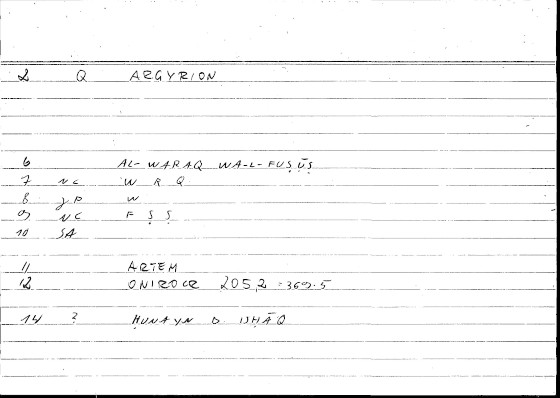 2 Q ARGYRION
6 AL-WARAQ WA-L-FUṢŪṢ
7 NC W R Q
8 JP W
9 NC F Ṣ Ṣ
10 SA
11 ARTEM
12 ONIROCR 205,2 = 369.5
14 ? ḤUNAYN B ISḤĀQ